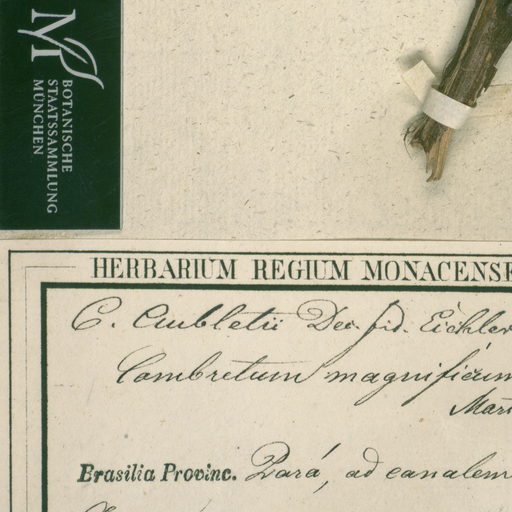 M
BOTANISCHE
STAATSSAMMLUNG
MÜNCHEN
HERBARIUM REGIUM MONACENSE
C. Aubletii Dec. fid. Eichler
Combretum magnificum
Mart
Brasilia Provinc. Pará, ad canalem